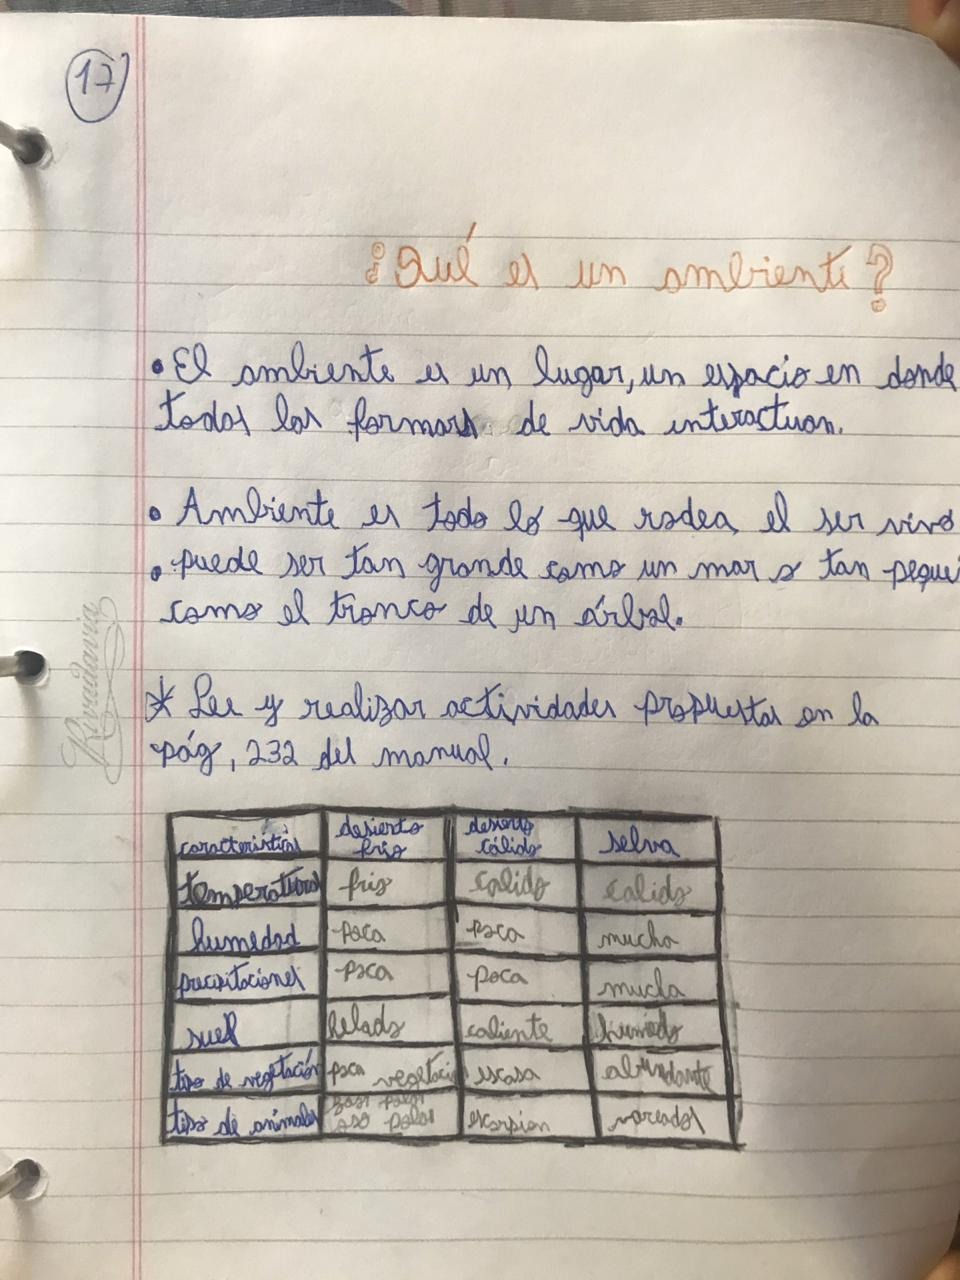 17
¿Qué es un ambiente?
• El ambiente es un lugar, un espacio en donde
todas las formas de vida interactuan.
• Ambiente es todo lo que rodea el ser vivo
• puede ser tan grande como un mar o tan pequeñ
como el tronco de un árbol.
* Lee y realizar actividades propuestas en la
pág, 232 del manual.
Rivadavia
características desierto frio desierto cálido selva
temperatura frio calido calido
humedad poca poca mucha
precipitaciones poca poca mucha
suel helado caliente humedo
tipo de vegetación poca vegetació escasa abundante
tipo de animales oso polar escorpion variados